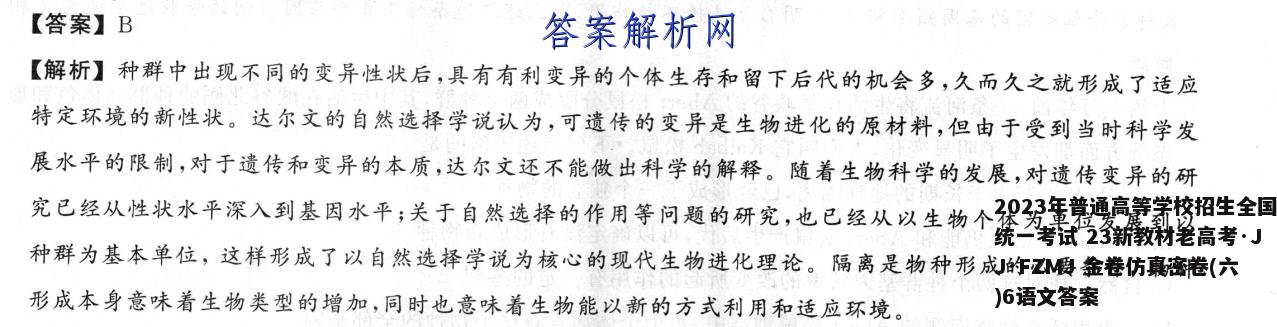 【答案】B
答案解析网
【解析】种群中出现不同的变异性状后,具有有利变异的个体生存和留下后代的机会多,久而久之就形成了适应
特定环境的新性状。达尔文的自然选择学说认为,可遗传的变异是生物进化的原材料,但由于受到当时科学发
展水平的限制,对于遗传和变异的本质,达尔文还不能做出科学的解释。随着生物科学的发展,对遗传变异的研
究已经从性状水平深入到基因水平;关于自然选择的作用等问题的研究,也已经从以生物个体为单位发展到以
种群为基本单位,这样形成了以自然选择学说为核心的现代生物进化理论。隔离是物种形成的
形成本身意味着生物类型的增加,同时也意味着生物能以新的方式利用和适应环境。
2023年普通高等学校招生全国
统一考试 23新教材老高考·J
J·FZMJ 金卷仿真密卷(六
)6语文答案